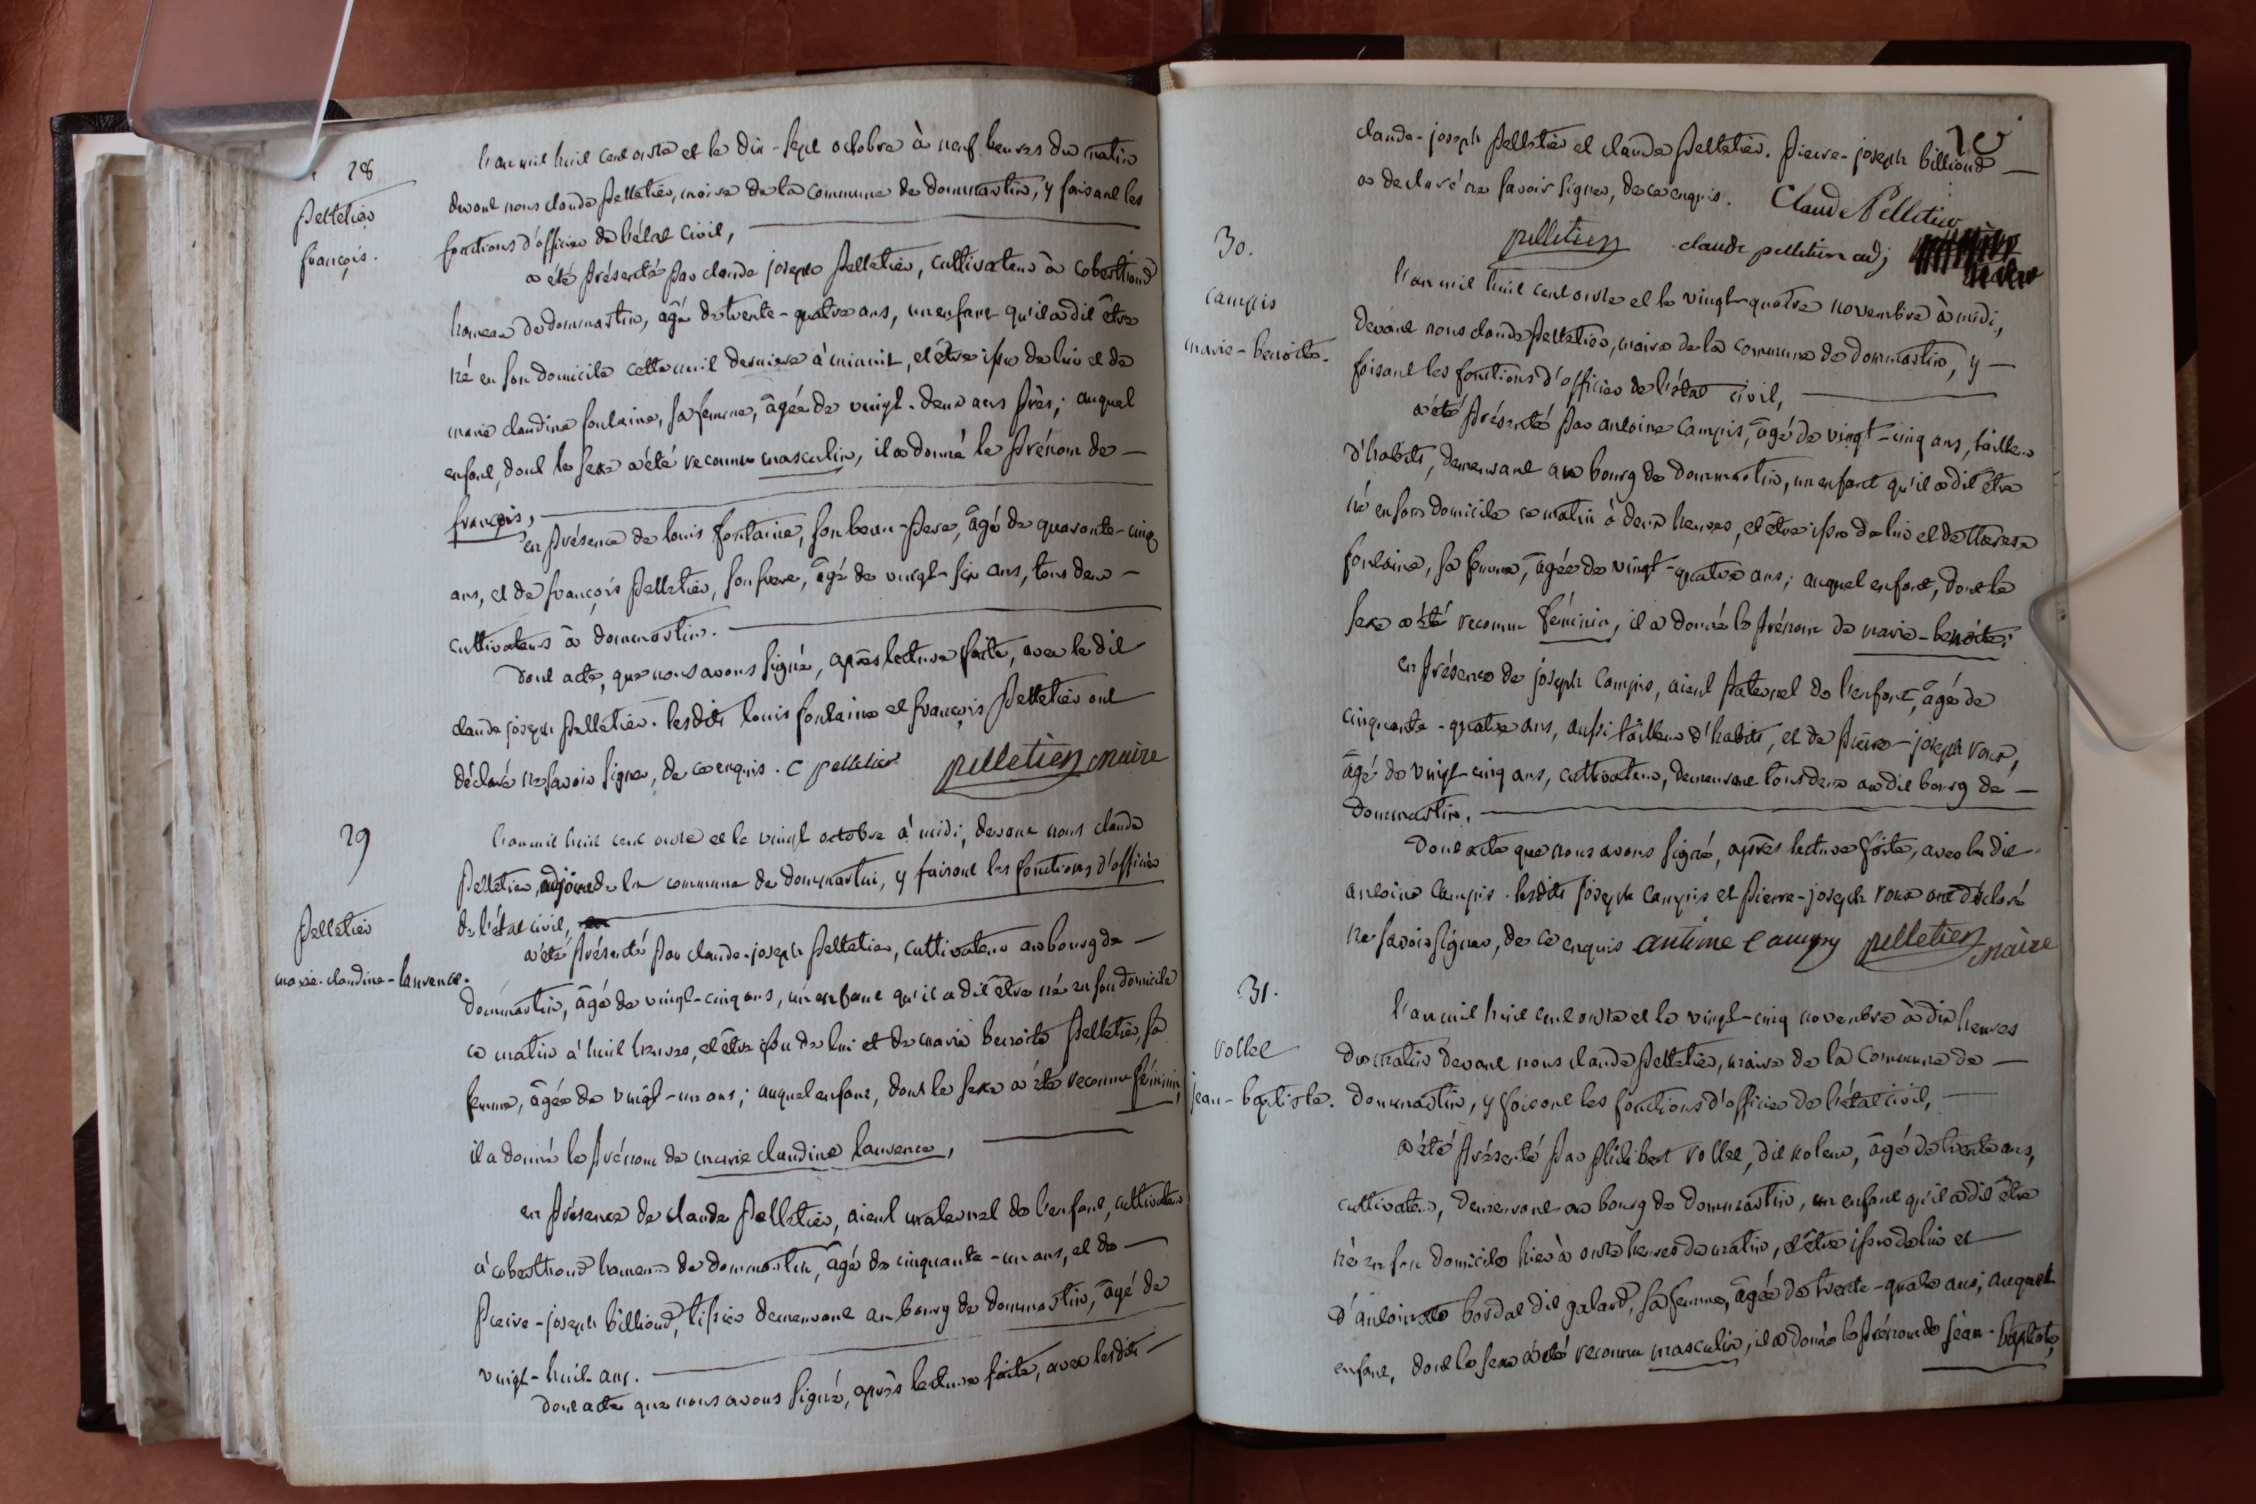 28
pelletier
françois.
l'an mil huit cent onze et le dix-sept octobre à neuf heures du matin
devant nous claude pelletier, maire de la commune de dommartin, y faisant les
fonctions d'officier de l'état civil,
a été présenté par claude joseph pelletier, cultivateur à coberthoud
hameau de dommartin, âgé de trente-quatre ans, un enfant qu'il a dit être
né en son domicile cette nuit derniere à minuit, et être issu de lui et de
marie claudine fontaine, sa femme, âgée de vingt-deux ans près; auquel
enfant, dont le sexe a été reconnu masculin, il a donné le prénom de
françois,
en présence de louis fontaine, son beau-pere, âgé de quarante-cinq
ans, et de françois pelletier, son frere, âgé de vingt-six ans, tous deux
cultivateurs à dommartin.
dont acte, que nous avons signé, après lecture faite, avec le dit
claude joseph pelletier. lesdits louis fontaine et françois pelletier ont
déclaré ne savoir signer, de ce enquis. C pelletier pelletier maire
29
pelletier
marie-claudine-laurence.
l'an mil huit cent onze et le vingt octobre à midi, devant nous claude
pelletier, adjoint de la commune de dommartin, y faisant les fonctions d'officier
de l'état civil,
a été présenté par claude-joseph pelletier, cultivateur au bourg de
dommartin, âgé de vingt-cinq ans, un enfant qu'il a dit être né en son domicile
ce matin à huit heures, et être issu de lui et de marie benoite pelletier, sa
femme, âgée de vingt-un ans; auquel enfant, dont le sexe a été reconnu féminin,
il a donné le prénom de marie claudine laurence,
en présence de claude pelletier, aieul maternel de l'enfant, cultivateur
à coberthoud hameau de dommartin, âgé de cinquante-un ans, et de
pierre-joseph billioud, tissier demeurant au bourg de dommartin, âgé de
vingt-huit ans.
dont acte que nous avons signé, après lecture faite, avec lesdits
claude-joseph pelletier et claude pelletier. pierre-joseph billioud
a declaré ne savoir signer, de ce enquis. Claude Pelletier
pelletier claude pelletier adj
30.
campis
marie-benoite.
l'an mil huit cent onze et le vingt-quatre novembre à midi,
devant nous claude pelletier, maire de la commune de dommartin, y
faisant les fonctions d'officier de l'état civil,
a été présenté par antoine campis, âgé de vingt-cinq ans, tailleur
d'habits, demeurant au bourg de dommartin, un enfant qu'il a dit être
né en son domicile ce matin à deux heures, et être issu de lui et de therese
fontaine, sa femme, âgée de vingt-quatre ans; auquel enfant, dont le
sexe a été reconnu féminin, il a donné le prénom de marie-benoite;
en présence de joseph campis, aieul paternel de l'enfant, âgé de
cinquante-quatre ans, aussi tailleur d'habits, et de pierre-joseph roux,
âgé de vingt-cinq ans, cultivateur, demeurant tous deux au dit bourg de
dommartin.
dont acte que nous avons signé, après lecture faite, avec le dit
antoine campis. lesdits joseph campis et pierre-joseph roux ont déclaré
ne savoir signer, de ce enquis antoine campy pelletier maire
31.
vollet
jean-baptiste.
l'an mil huit cent onze et le vingt-cinq novembre à dix heures
du matin devant nous claude pelletier, maire de la commune de
dommartin, y faisant les fonctions d'officier de l'état civil,
a été présenté par philibert vollet, dit âgé de trente ans,
cultivateur, demeurant au bourg de dommartin, un enfant qu'il a dit être
né en son domicile hier à onze heures du matin, et être issu de lui et
d'antoinette bordat dit galard, sa femme, âgée de trente-quatre ans; auquel
enfant, dont le sexe a été reconnu masculin, il a donné le prénom de jean-baptiste,